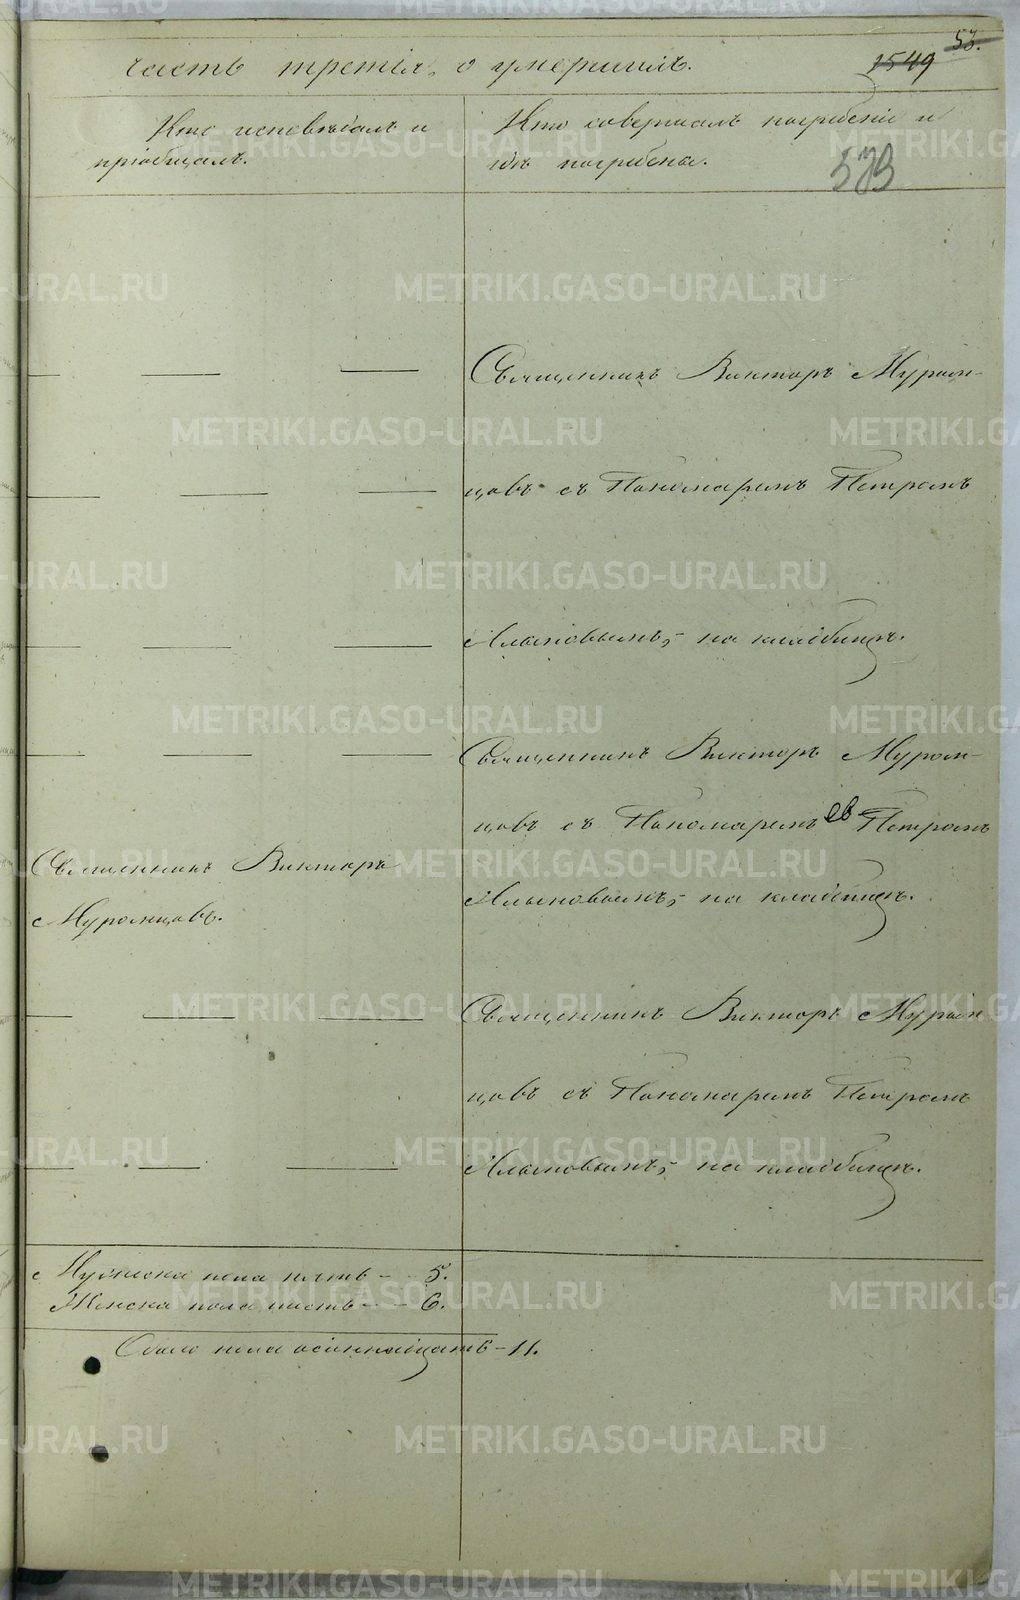 53.
1549
часть третiя, о умершихъ.
Кто исповѣдалъ и
прiобщалъ.
Кто совершалъ погребенiе и
гдѣ погребены.
573
Священникъ Викторъ Муром-
цовъ съ Пономаремъ Петромъ
на кладбищѣ.
Священникъ Викторъ Муром-
цовъ съ Пономаремъ Петромъ
на кладбищѣ.
Священникъ Викторъ
Муромцовъ.
Священникъ Викторъ Муром
цовъ съ Пономаремъ Петромъ
на кладбищѣ.
Мужеска пола пять - 5.
Женска пола шесть - - 6.
Обоего пола одиннадцать - 11.
METRIKI.GASO-URAL.RU